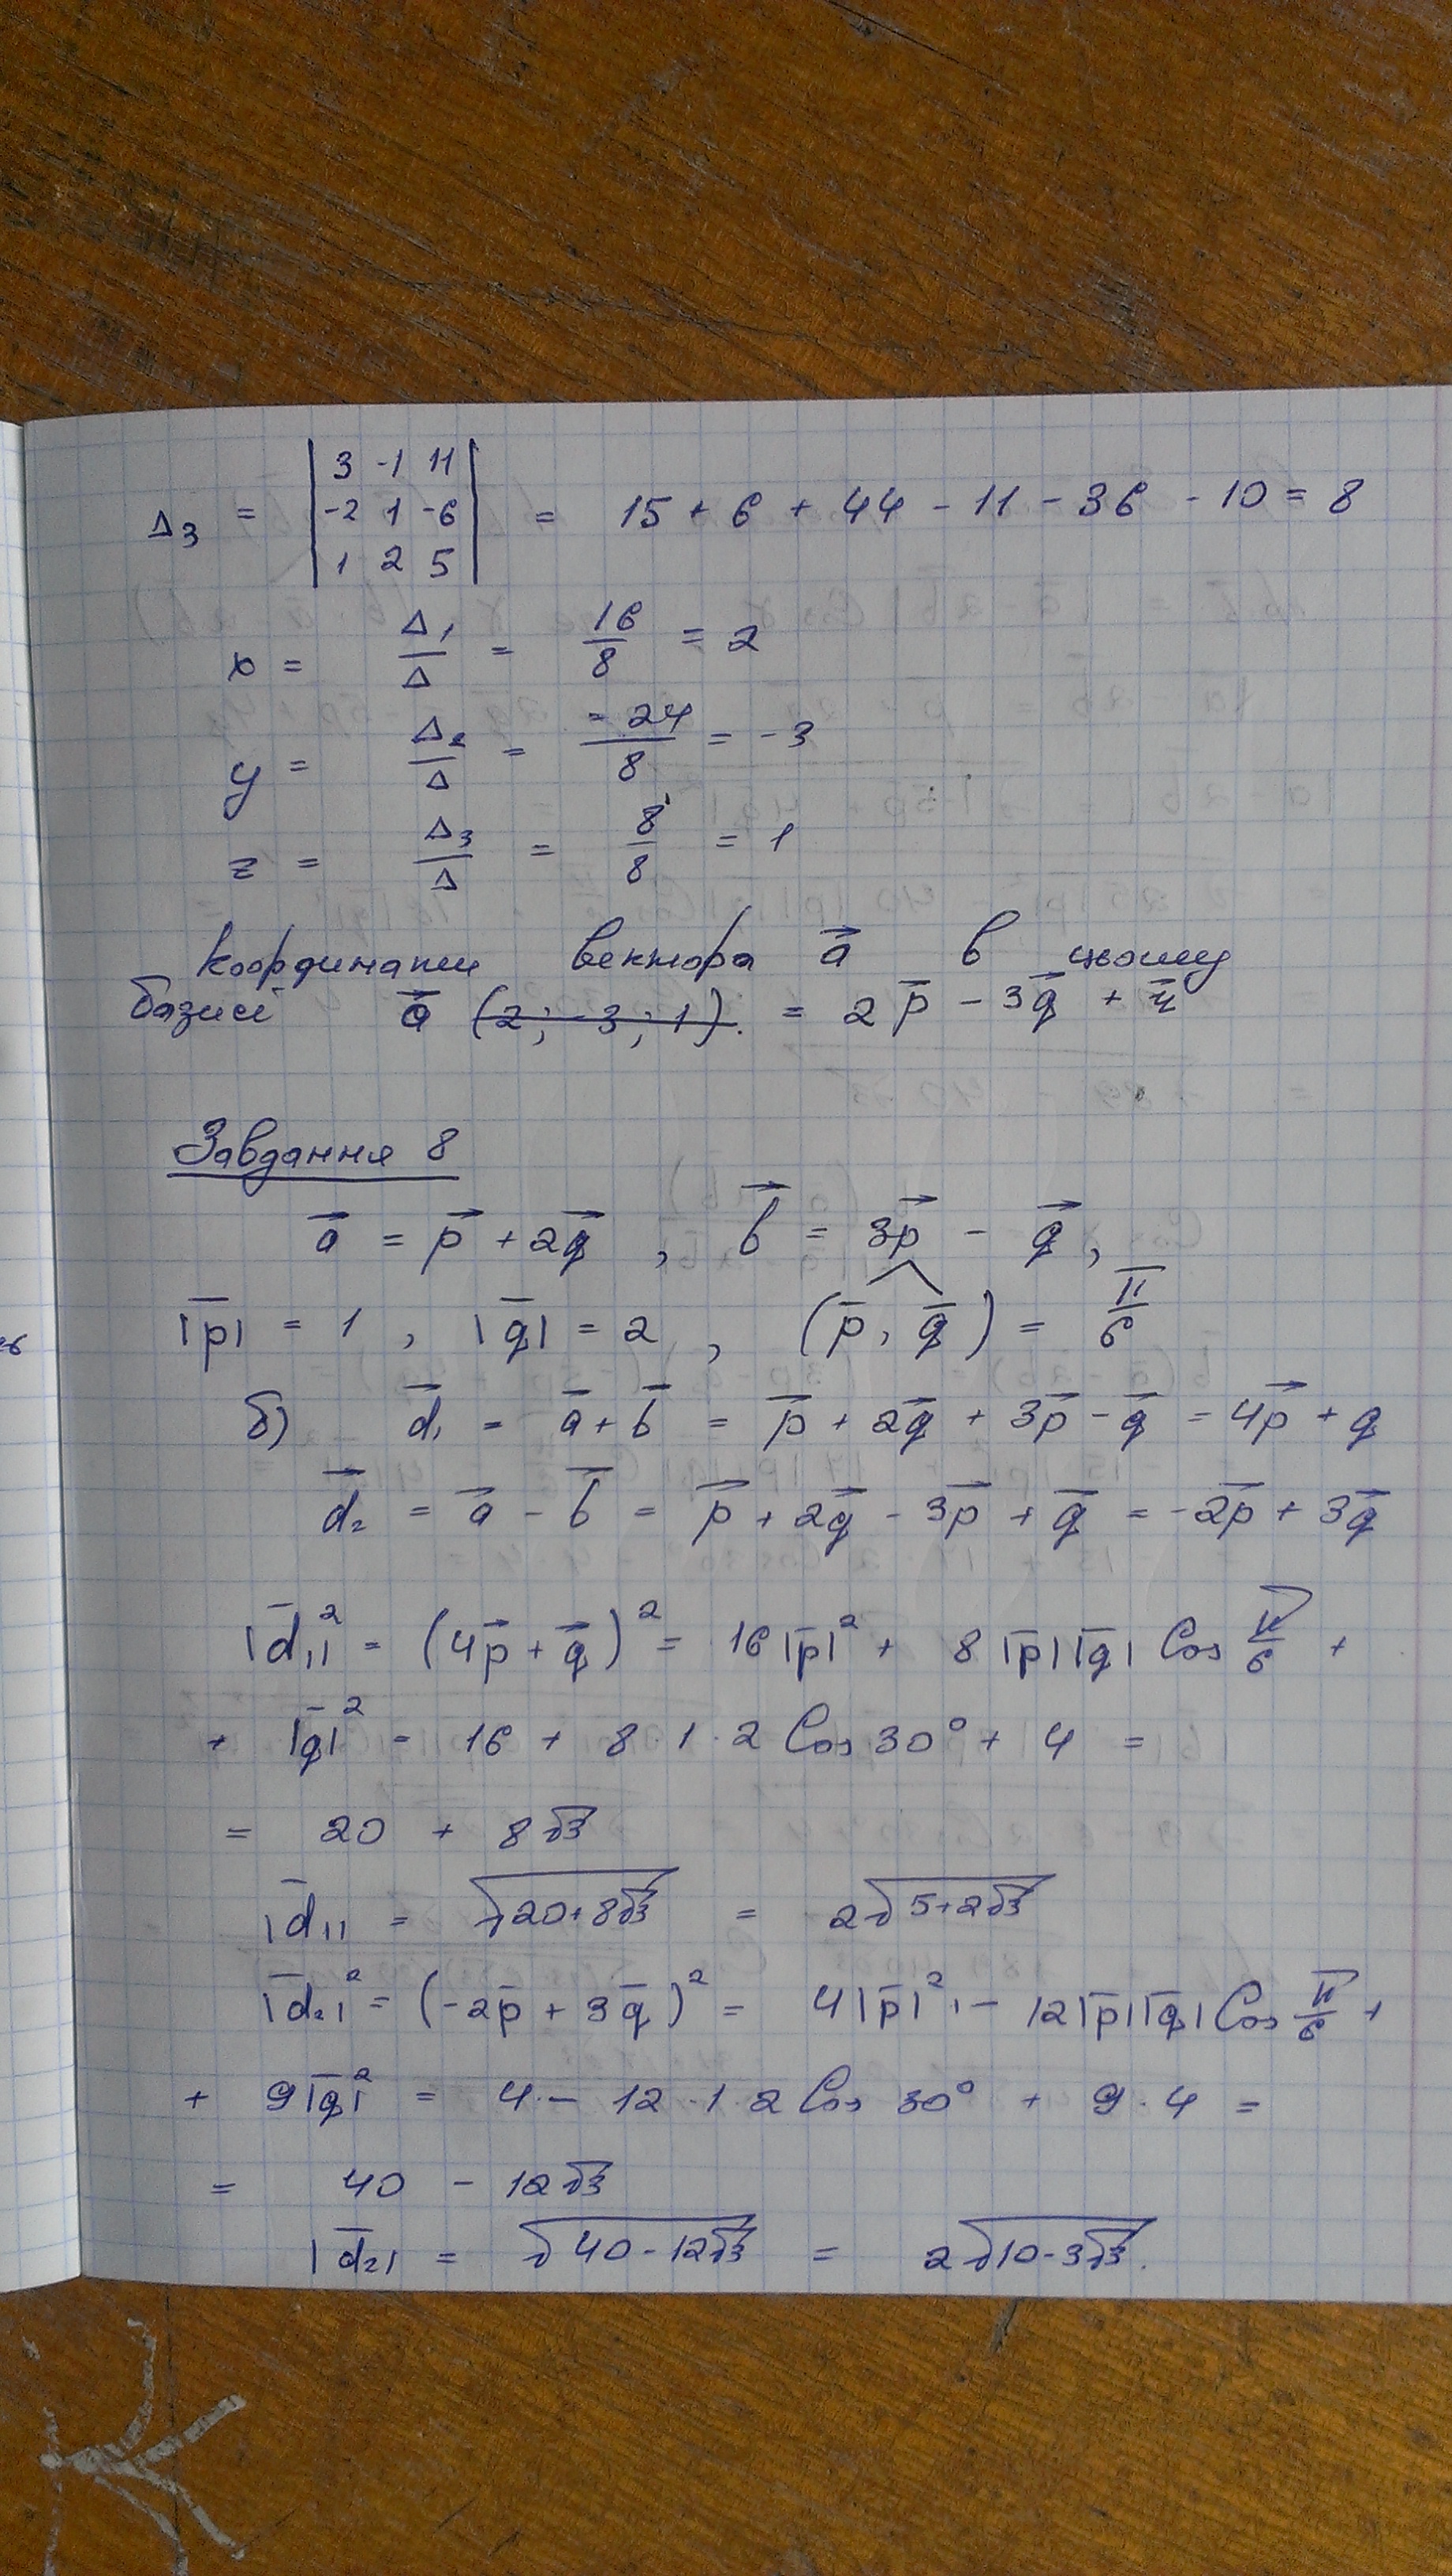 Δ₃ = |3 -1 11; -2 1 -6; 1 2 5| = 15 + 6 + 44 - 11 - 36 - 10 = 8
x = Δ₁/Δ = 16/8 = 2
y = Δ₂/Δ = -24/8 = -3
z = Δ₃/Δ = 8/8 = 1
координати вектора a⃗ в цьому
базисі a⃗ (2; -3; 1). = 2p̅ - 3q̅ + r̅
Завдання 8
a⃗ = p⃗ + 2q⃗, b⃗ = 3p⃗ - q⃗,
|p̅| = 1, |q̅| = 2, (p̅, q̅) = π/6
б) d̅₁ = a̅ + b̅ = p⃗ + 2q⃗ + 3p⃗ - q⃗ = 4p⃗ + q
d⃗₂ = a⃗ - b̅ = p⃗ + 2q⃗ - 3p⃗ + q⃗ = -2p⃗ + 3q⃗
|d̅₁|² = (4p⃗ + q⃗)² = 16|p̅|² + 8|p̅||q̅| Cos π/6 +
+ |q̅|² = 16 + 8·1·2 Cos 30° + 4 =
= 20 + 8√3
|d̅₁| = √(20+8√3) = 2√(5+2√3)
|d̅₂|² = (-2p̅ + 3q̅)² = 4|p̅|² - 12|p̅||q̅| Cos π/6 +
+ 9|q̅|² = 4 - 12·1·2 Cos 30° + 9·4 =
= 40 - 12√3
|d̅₂| = √(40-12√3) = 2√(10-3√3).